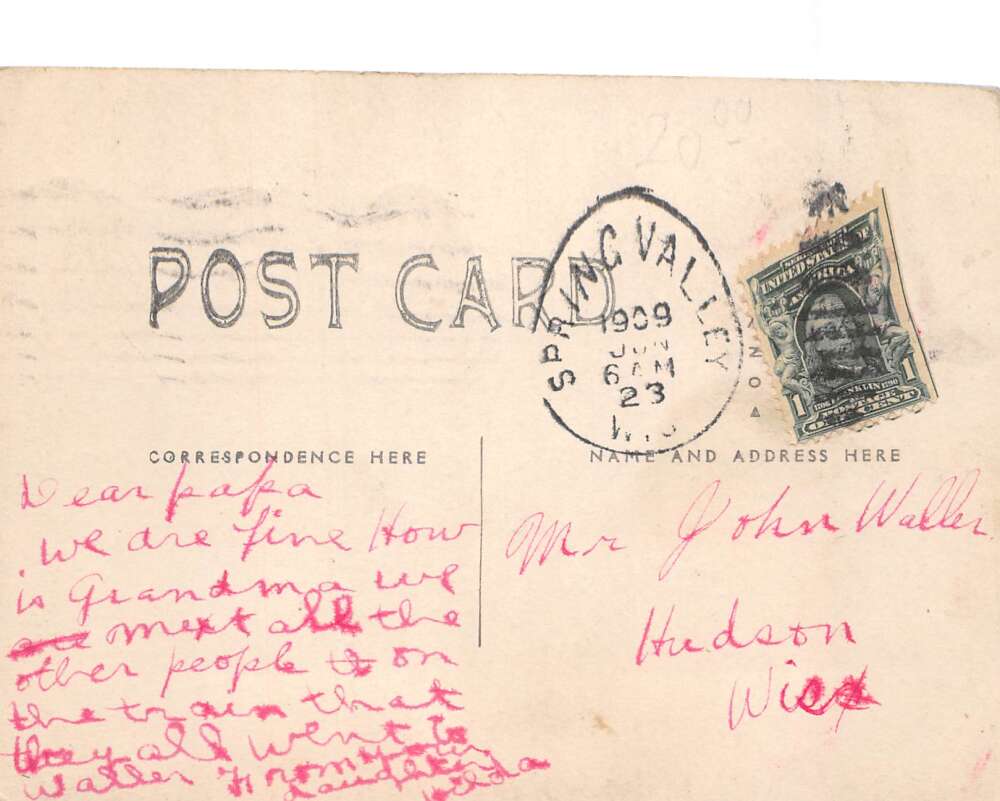 20 00
POST CARD
SPRING VALLEY
1909
JUN
6 AM
23
WIS
SERIES 1902
UNITED STATES OF
AMERICA
1 1706 FRANKLIN 1790
POSTAGE
ONE CENT
CORRESPONDENCE HERE
NAME AND ADDRESS HERE
Dear papa
we are fine How
is Grandma we
are mext all the
other people to on
the train that
they all went to
Waller From your
daughter
Hilda
Mr John Waller
Hudson
Wisx